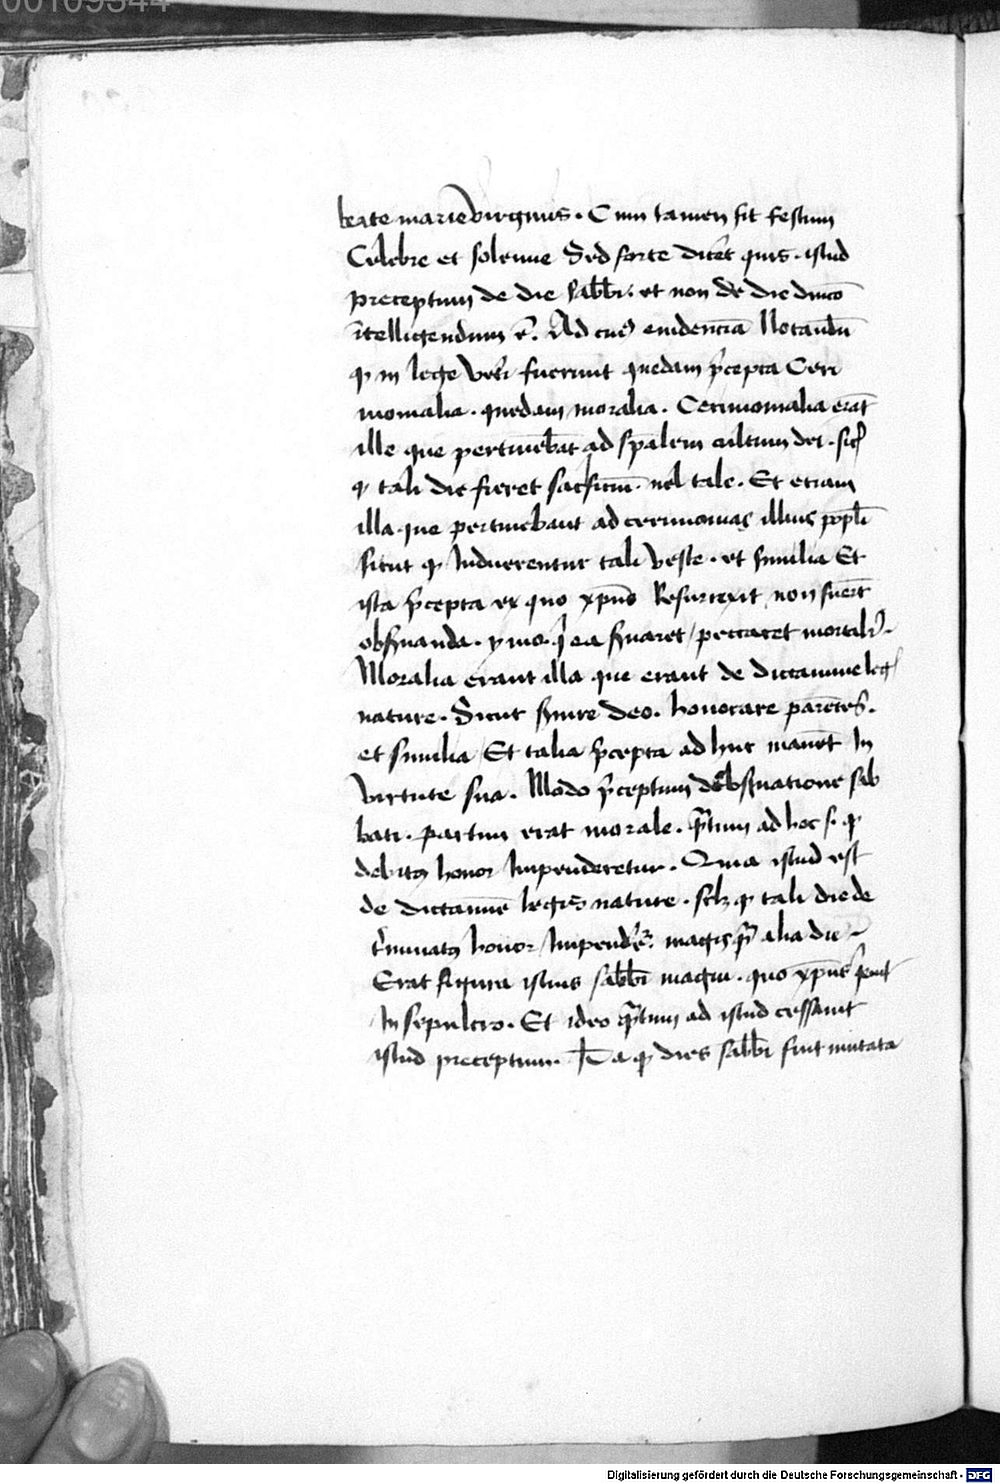 00109344
beate marie virginis. Cum tamen sit festum
Celebre et solenne Sed forte dicet quis. istud
preceptum de die sabbi. et non de die dnico
ītelligendum ē. Ad cuꝰ euidenciā Notandū
ꝙ in lege veti fuerunt quedam p̄cepta Ceri
monialia. quedam moralia. Cerimonialia erāt
ille que pertinebāt ad sp̄alem cultum dei. sic
ꝙ tali die fieret sacficiū. uel tale. Et etiam
illa que pertinebant ad cerimonias illius popli
sicut ꝙ Induerentur tali veste. et similia Et
ista p̄cepta ex quo xpūs Resurrexit non fuerūt
obſuanda. ymo. qͥ ea ſuaret / peccaret mortalr.
Moralia erant illa que erant de dictamine leg
nature. Sicut ſuire deo. honorare parētes.
et similia / Et talia p̄cepta ad huc manēt In
virtute sua. Modo p̄ceptum de obſuatione sab
bati. partim erat morale. q̄tum ad hoc s. ꝙ
debitꝰ honor Impenderetur. Quia istud est
de dictamīe legis nature. sclꝫ ꝙ tali die de
t̄minatꝰ honor Impendr̄. magis q̄ alia die
Erat figura istius sabbi magni. quo xpus
In sepulcro. Et ideo q̄tum ad istud cessauit
istud preceptum. Ita ꝙ dies sabbi fuit mutata
Digitalisierung gefördert durch die Deutsche Forschungsgemeinschaft - DFG